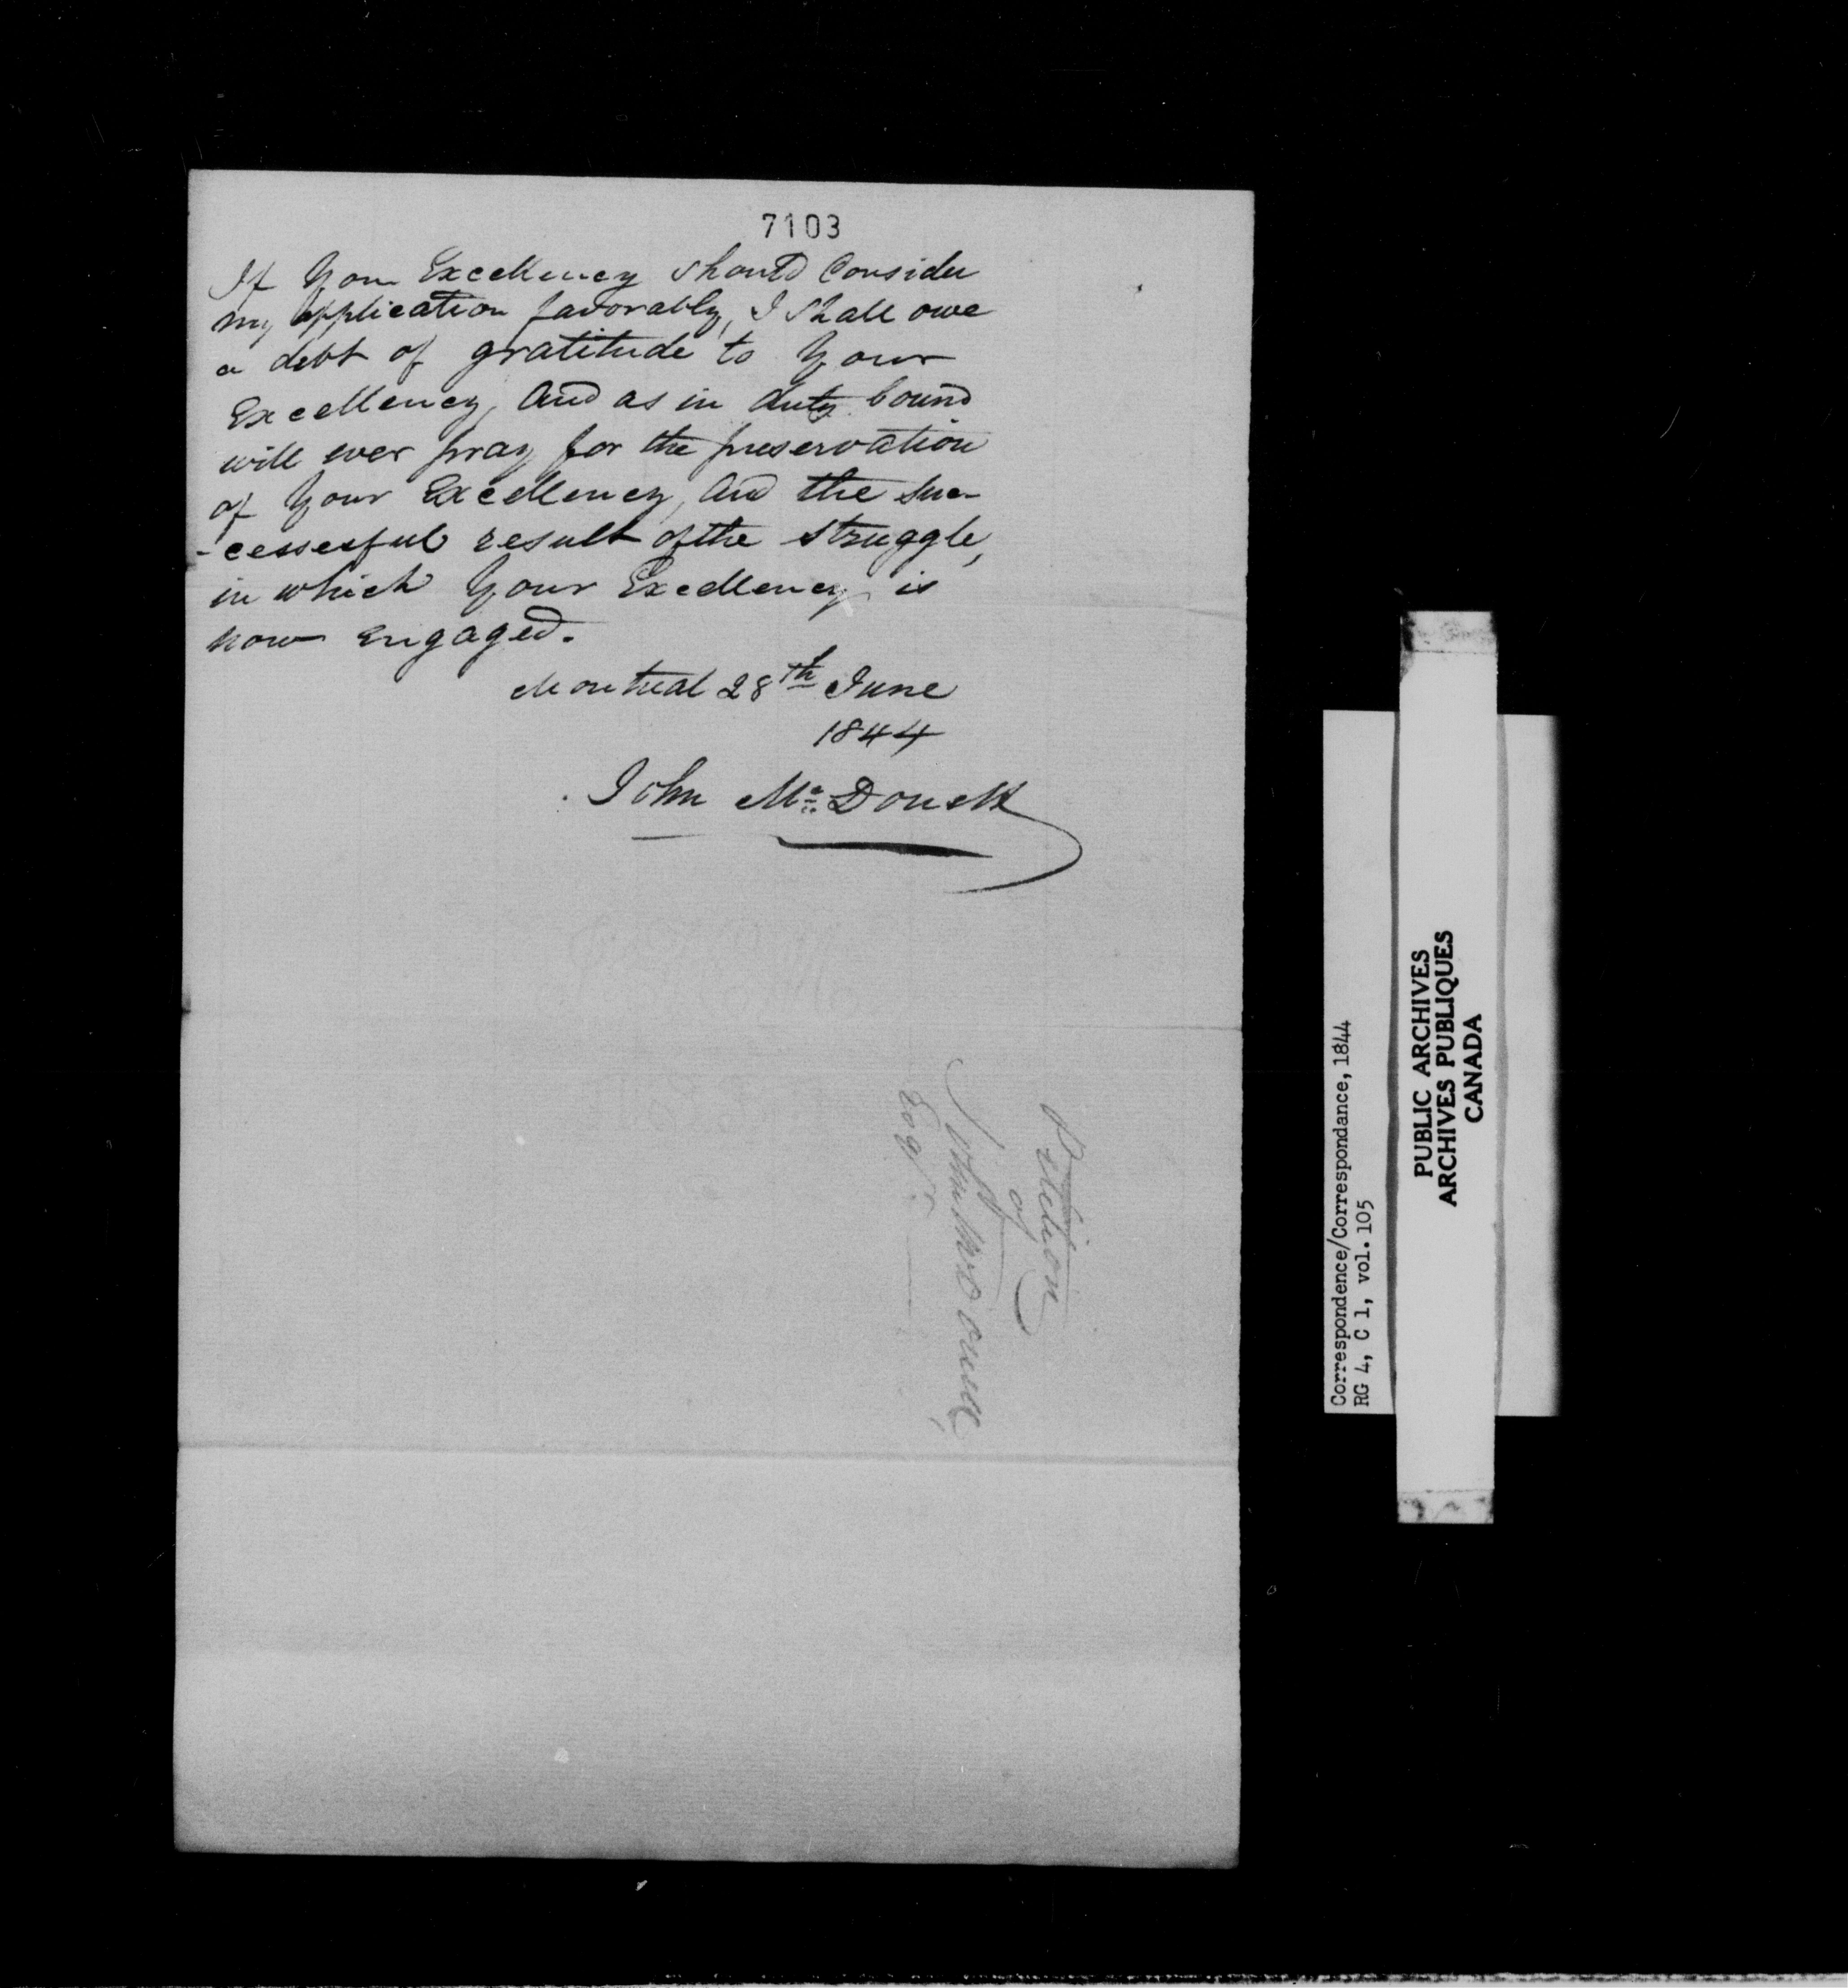 7103
If Your Excellency should Consider
my application favorably, I shall owe
a debt of gratitude to Your
Excellency, And as in duty bound
will ever pray for the preservation
of Your Excellency, And the suc-
-cessesful result of the struggle,
in which Your Excellency is
now Engaged.
Montreal 28th June
1844
John Mc Donell
Petition
of
John McDonell,
Esqr
Correspondence/Correspondance, 1844
RG 4, C 1, vol. 105
PUBLIC ARCHIVES
ARCHIVES PUBLIQUES
CANADA